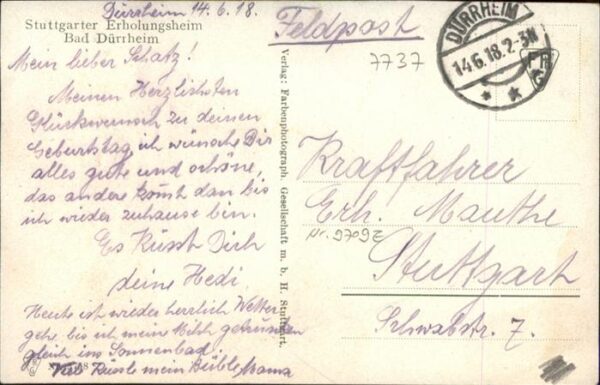 Dürrheim 14.6.18.
Stuttgarter Erholungsheim
Bad Dürrheim
Mein lieber Schatz!
Meinen Herzlichsten
Glückwunsch zu deinen
Geburtstag, ich wünsche Dir
alles gute und schöne,
das andere komt dan bis
ich wieder zuhause bin.
Es Küsst Dich
deine Hedi.
Heute ist wieder herrlich Wetter
gehe bis ich meine Milch getrunken
gleich ins Sonnenbad.
Küssle mein Büble Mama
Verlag: Farbenphotograph. Gesellschaft m. b. H. Stuttgart.
Feldpost
7737
DÜRRHEIM
14.6.18.2-3N
Kraftfahrer
Erh. Mauthe
Nr. 9709Z
Stuttgart
Schwabstr. 7.